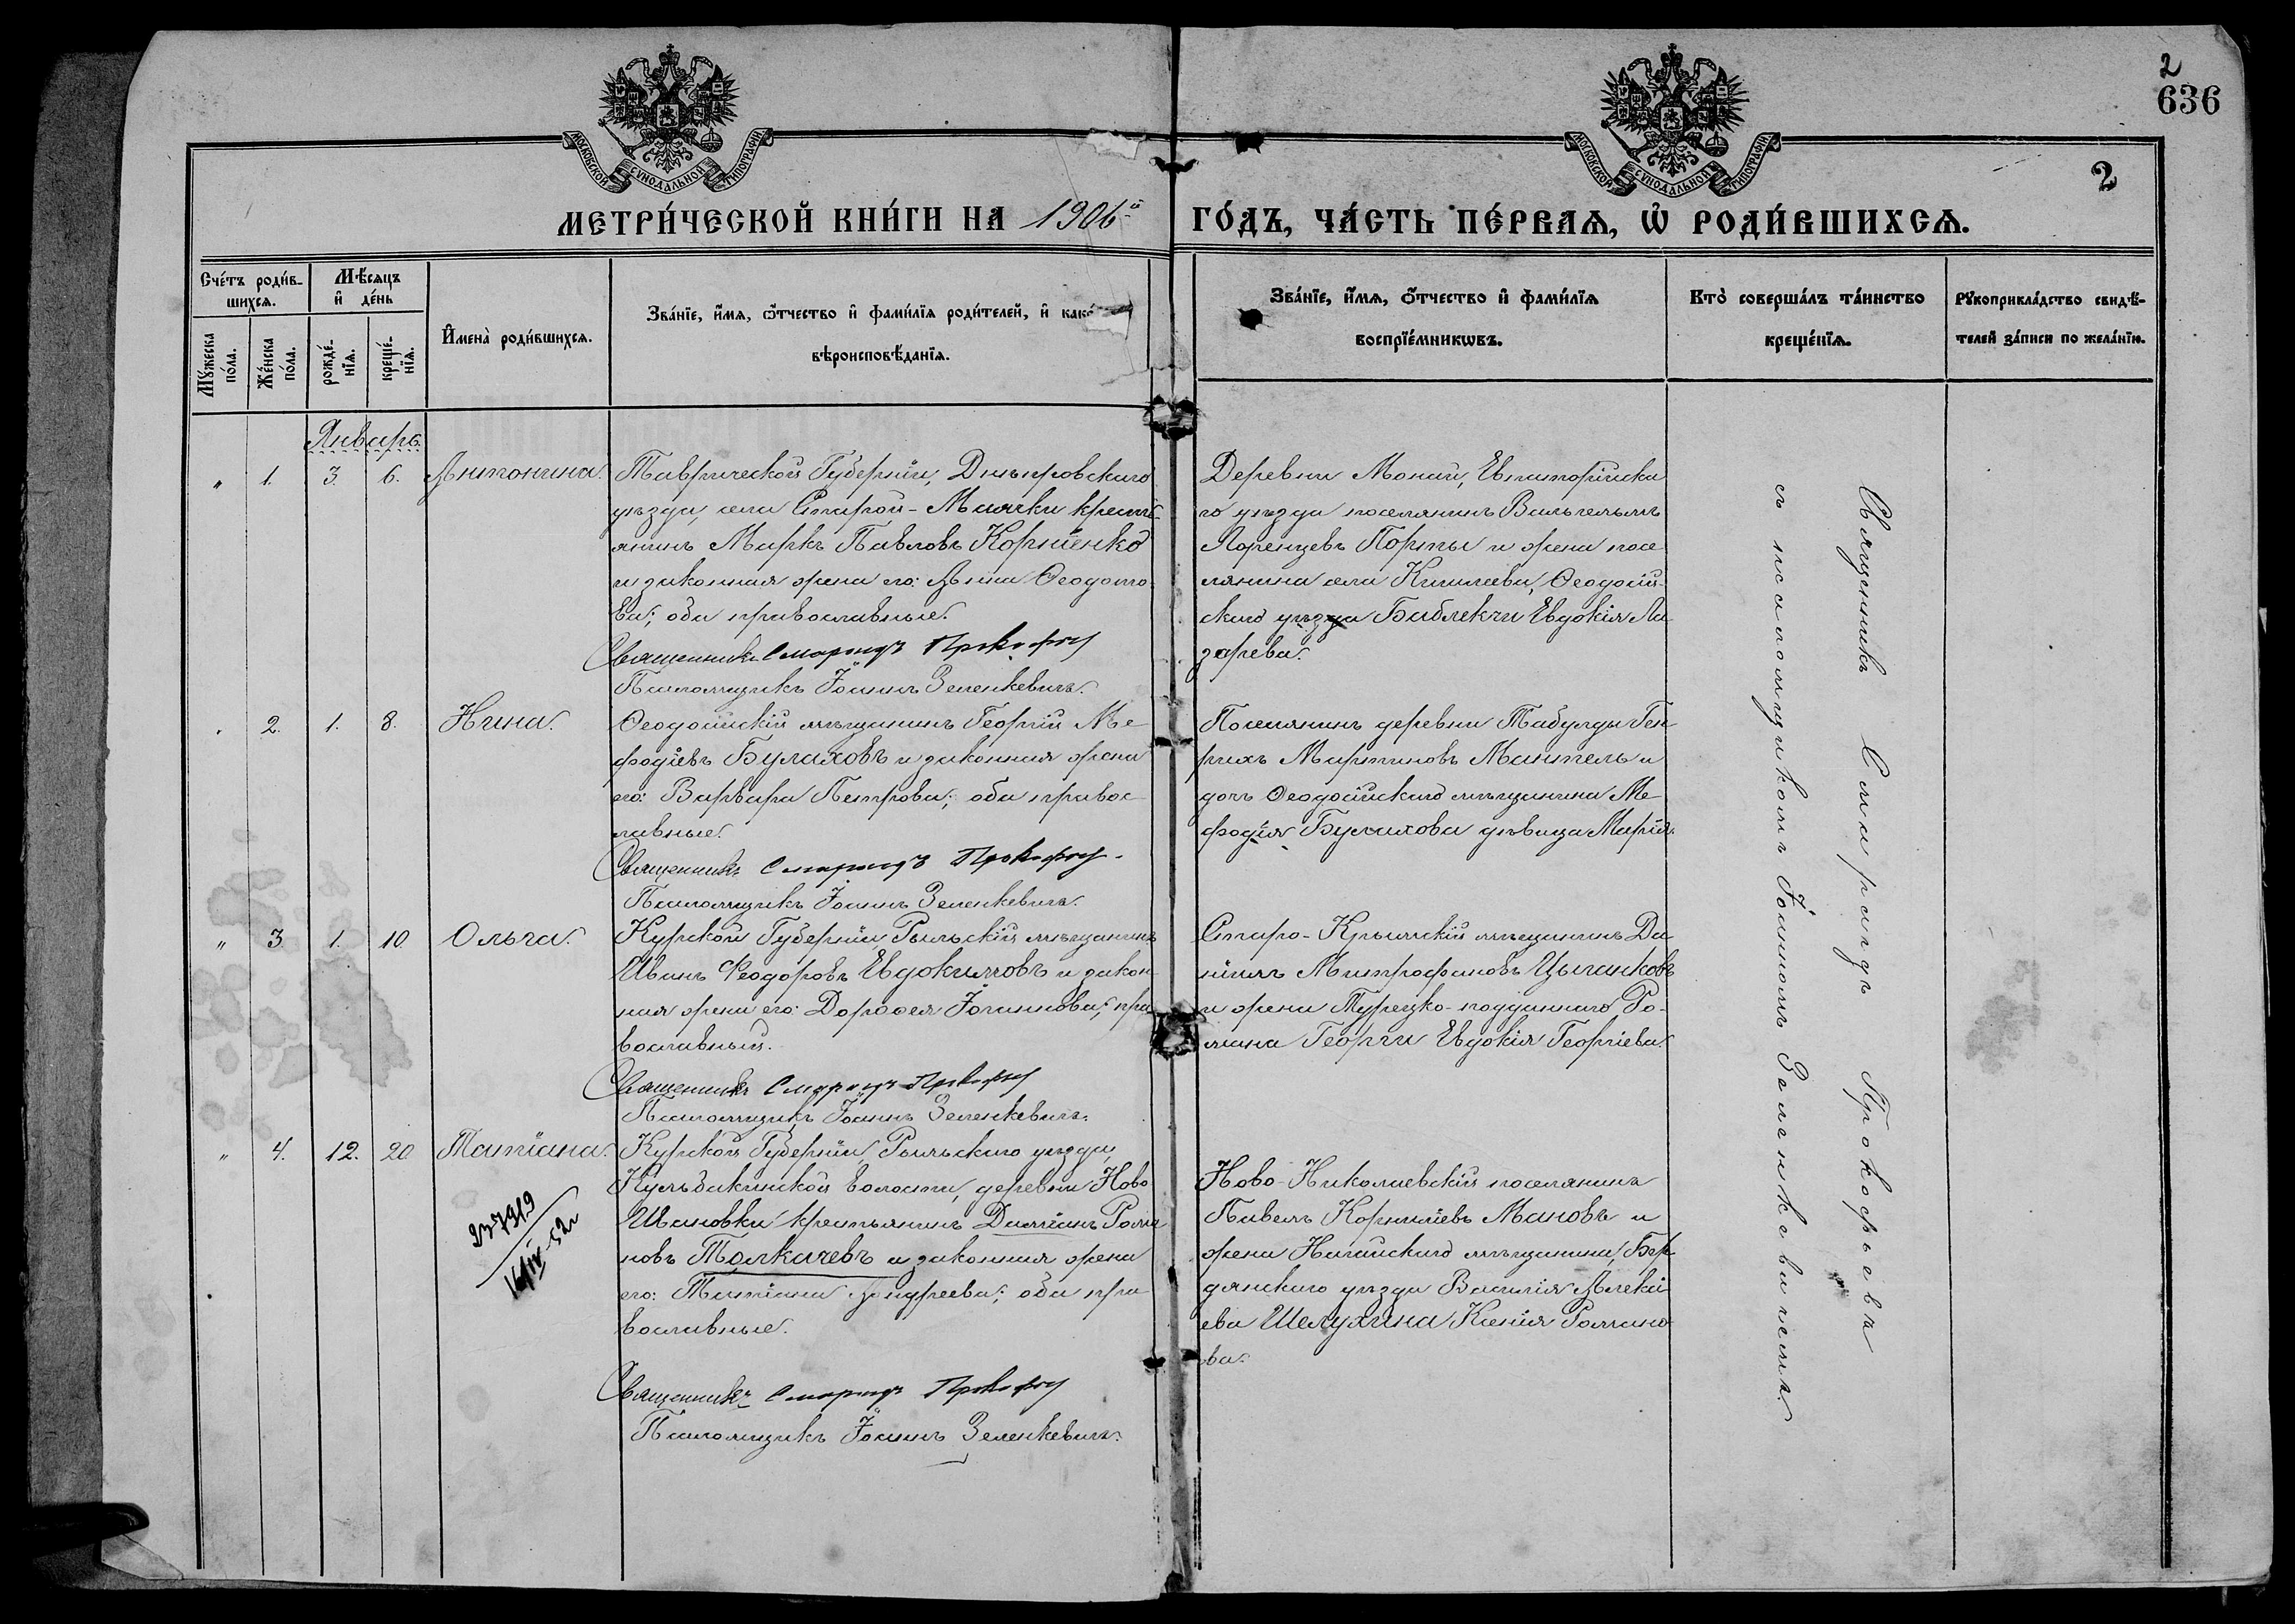 2
636
2
МОСКОВСКОЙ СѴНОДАЛЬНОЙ ТИПОГРАФІИ
МОСКОВСКОЙ СѴНОДАЛЬНОЙ ТИПОГРАФІИ
МЕТРИ́ЧЕСКОЙ КНИ́ГИ НА 1906й ГО́ДЪ, ЧА́СТЬ ПЕ́РВАЯ, Ѡ РОДИ́ВШИХСЯ.
Сче́тъ роди́в-
шихся.
Му́жеска
по́ла.
Же́нска
по́ла.
Мѣ́сяцъ
и де́нь
рожде́-
нія.
креще́-
нія.
Имена̀ роди́вшихся.
Зва́ніе, и́мя, ѻ́тчество и фами́лія роди́телей, и како́
вѣроисповѣ́данія.
Зва́ніе, и́мя, ѻ́тчество и фами́лія
воспріе́мникѡвъ.
Кто̀ соверша́лъ та́инство
креще́нія.
Рꙋкоприкла́дство свидѣ́-
телей за́писи по жела́нію.
Январь.
" 1. 3. 6. Антонина.
Таврической Губерніи, Днѣпровскаго
уѣзда, села Старой-Маячки кресть-
янинъ Маркъ Павловъ Корніенко
и законная жена его: Анна Ѳеодото-
ва; оба православные.
Священникъ Смарагдъ Прокофьев
Псаломщикъ Іоаннъ Зеленкевичъ.
Деревни Монай, Евпаторійска
го уѣзда поселянинъ Вильгельмъ
Лоренцевъ Порты и жена посе
лянина села Кишлава, Ѳеодосій-
скаго уѣзда Баблекчи Евдокія Ла
зарева.
" 2. 1. 8. Нина.
Ѳеодосійскій мѣщанинъ Георгій Ме-
фодіевъ Булаховъ и законная жена
его: Варвара Петрова; оба правос-
лавные.
Священникъ Смарагдъ Прокофьев
Псаломщикъ Іоаннъ Зеленкевичъ.
Поселянинъ деревни Табулды Ген
рихъ Мартиновъ Мантель и
дочь Ѳеодосійскаго мѣщанина Ме
фодія Булахова дѣвица Марія.
" 3. 1. 10. Ольга.
Курской Губерніи, Рыльскій мѣщанинъ
Иванъ Ѳеодоровъ Евдокимовъ и закон
ная жена его: Дороѳея Іоаннова; пра
вославный.
Священникъ Смарагдъ Прокофьев
Псаломщикъ Іоаннъ Зеленкевичъ.
Старо-Крымскій мѣщанинъ Да
ніилъ Митрофановъ Цыганковъ
и жена Турецко-подданнаго Ро-
мана Георги Евдокія Георгіева.
" 4. 12. 20. Татіана.
Курской Губерніи, Рыльскаго уѣзда,
Кульбакинской волости, деревни Ново
Ивановки крестьянинъ Даміанъ Рома
новъ Толкачевъ и законная жена
его: Татіана Андреева; оба пра
вославные.
Священникъ Смарагдъ Прокофьев
Псаломщикъ Іоаннъ Зеленкевичъ.
Ново-Николаевскій поселянинъ
Павелъ Корниліевъ Мановъ и
жена Ногайскаго мѣщанина, Бер
дянскаго уѣзда Василія Алексѣ
ева Шелухина Ксенія Романо
ва.
16/IV-52г
Священникъ Смарагдъ Прокофьевъ
съ псаломщикомъ Іоанномъ Зеленкевичемъ.